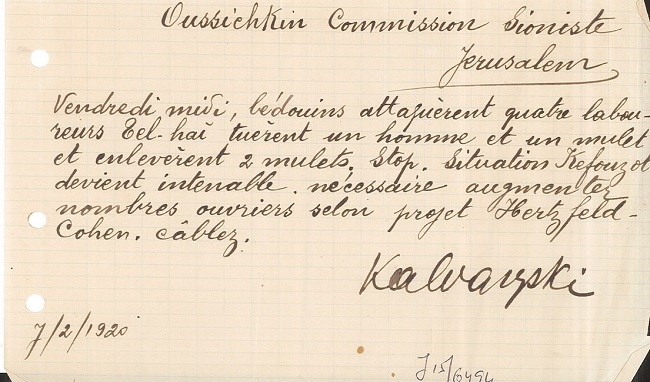 Oussichkin Commission Sioniste
Jerusalem
Vendredi midi, bédouins attaquèrent quatre labou-
reurs Eel-haï tuèrent un homme et un mulet
et enlevèrent 2 mulets. Stop. Situation Kefouzot
devient intenable. nécessaire augmentez
nombres ouvriers selon projet Hertzfeld-
Cohen. câblez.
Kalvaryski
7/2/1920
J15/6494